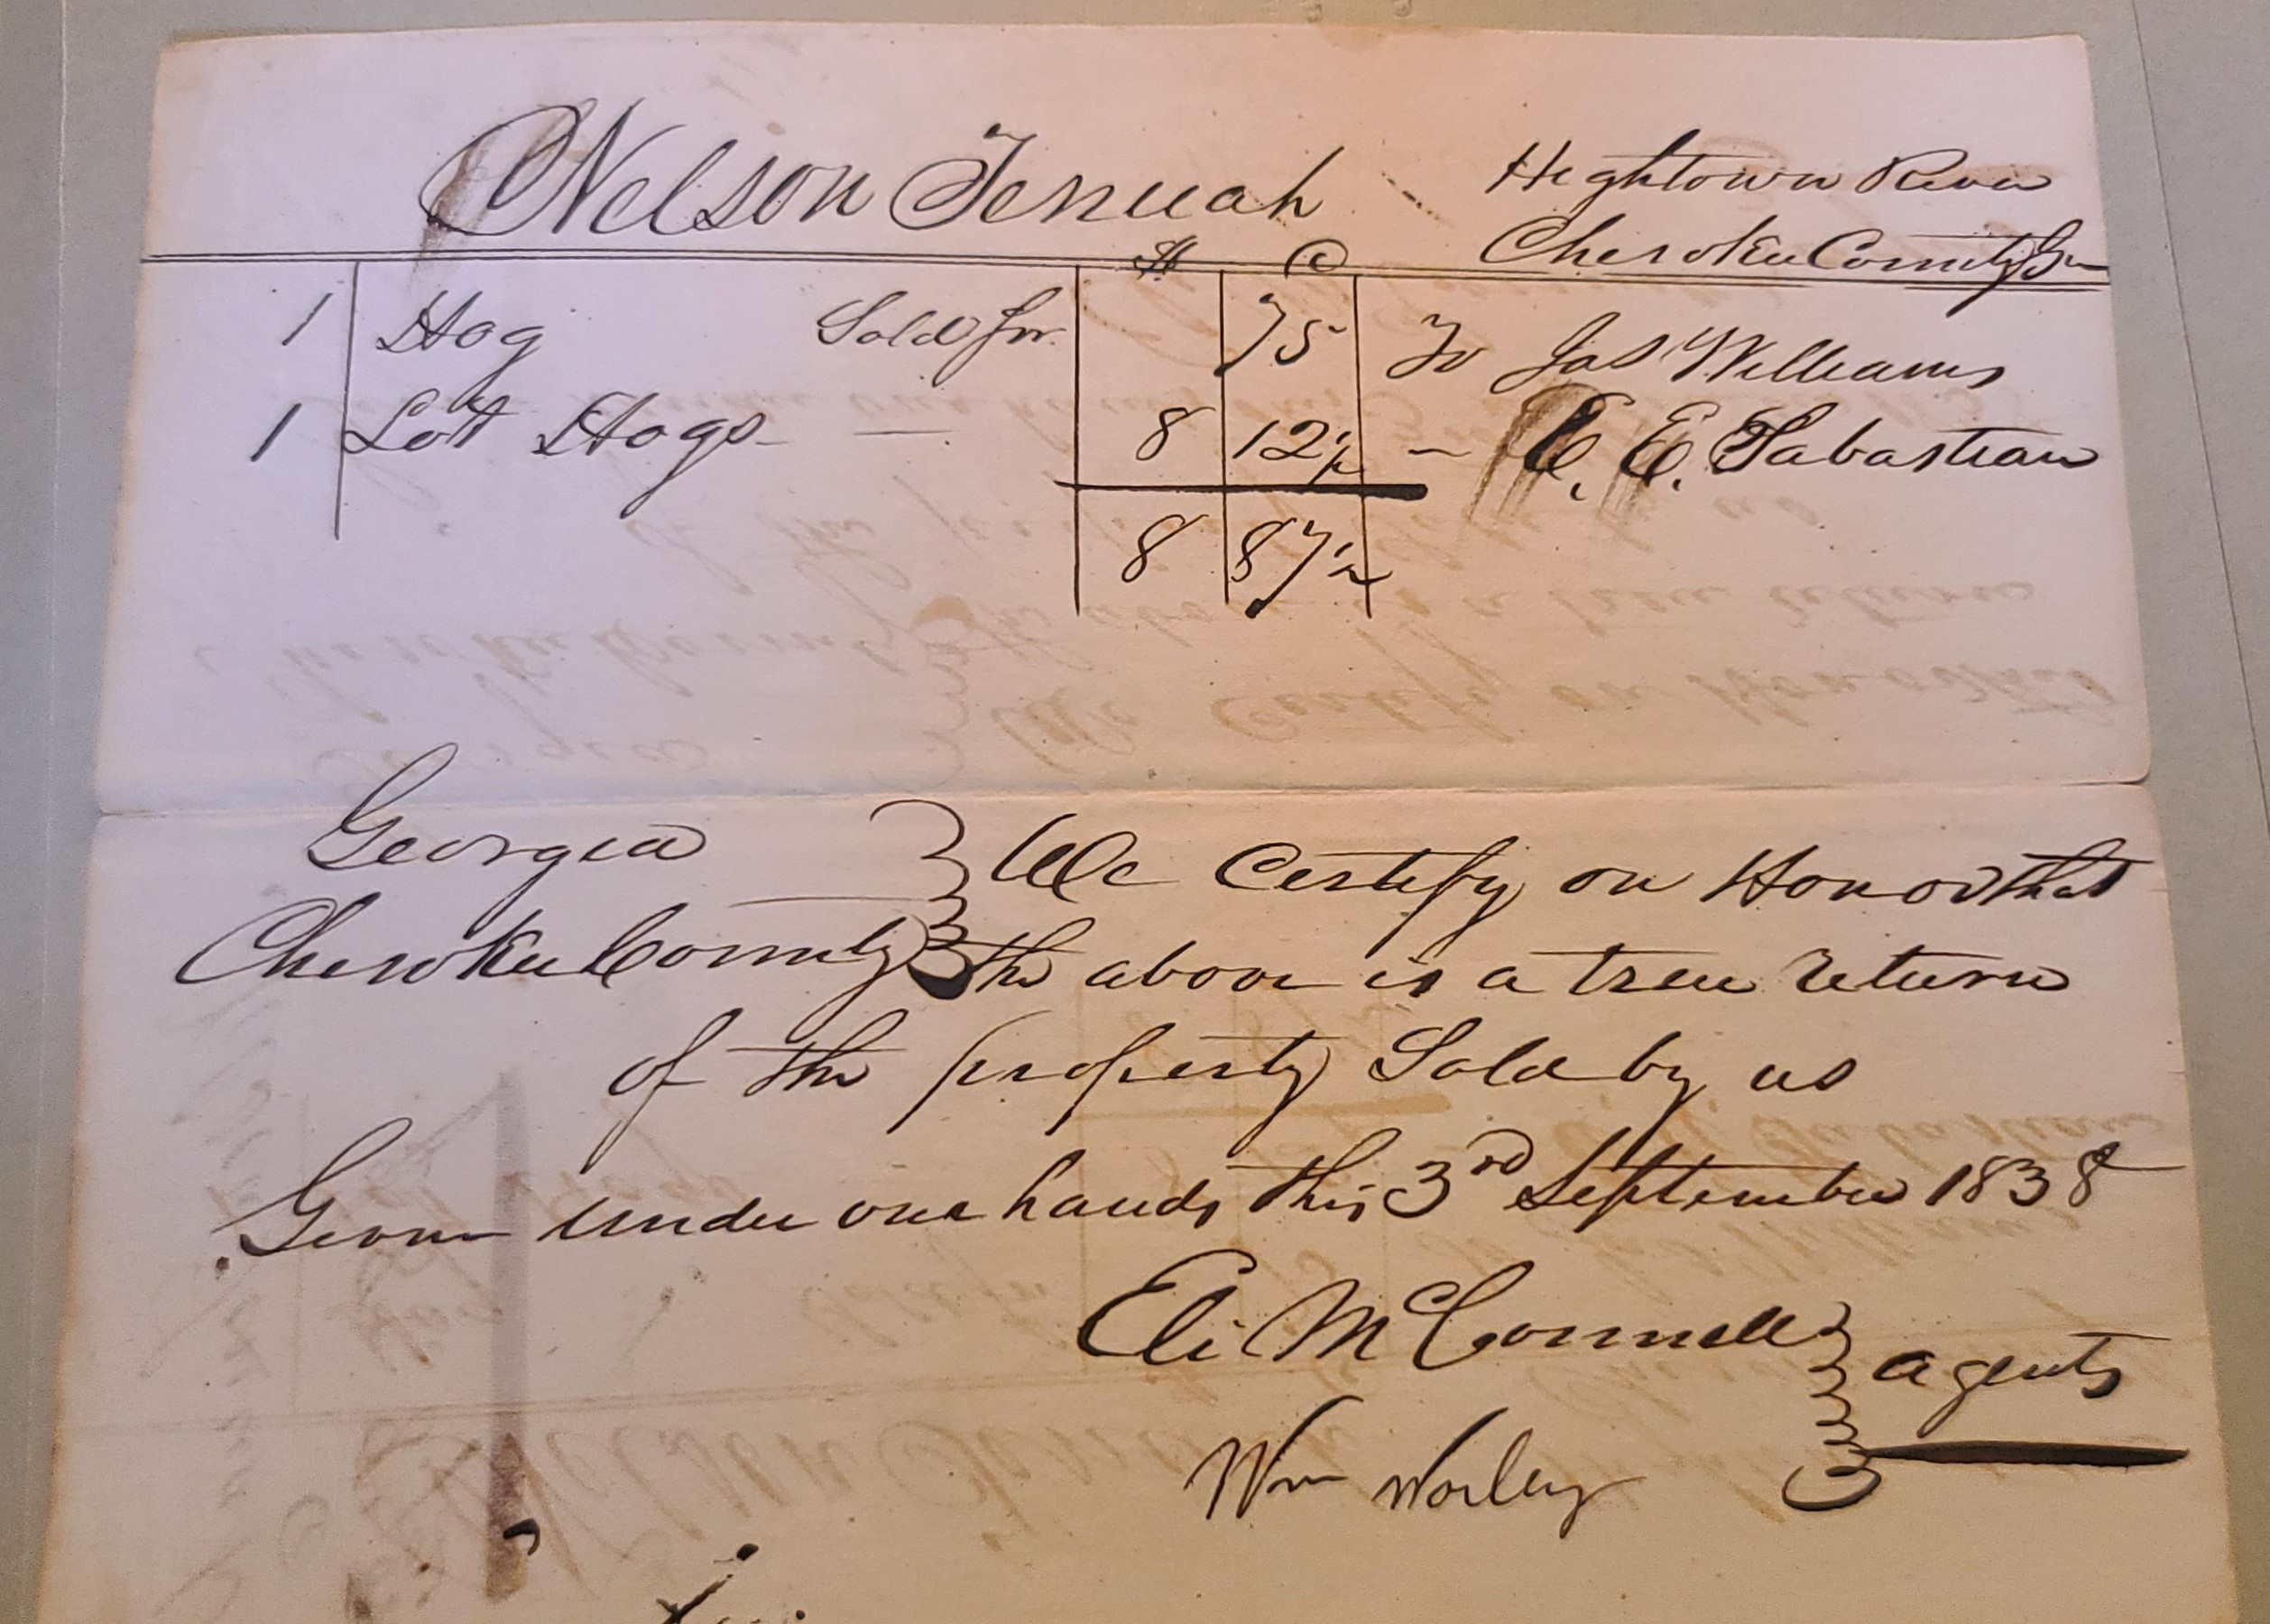 Nelson Tenuah Hightown River
Cherokee County Ga
$ C
1 Hog Sold for 75 To Jas Williams
1 Lot Hogs — 8 12½ — E. E. Sabastian
8 87½
Georgia We Certify on Honor that
Cherokee County the above is a treu return
of the property Sold by us
Given under our hands this 3rd September 1838
Eli McConnell
agents
Wm Worley